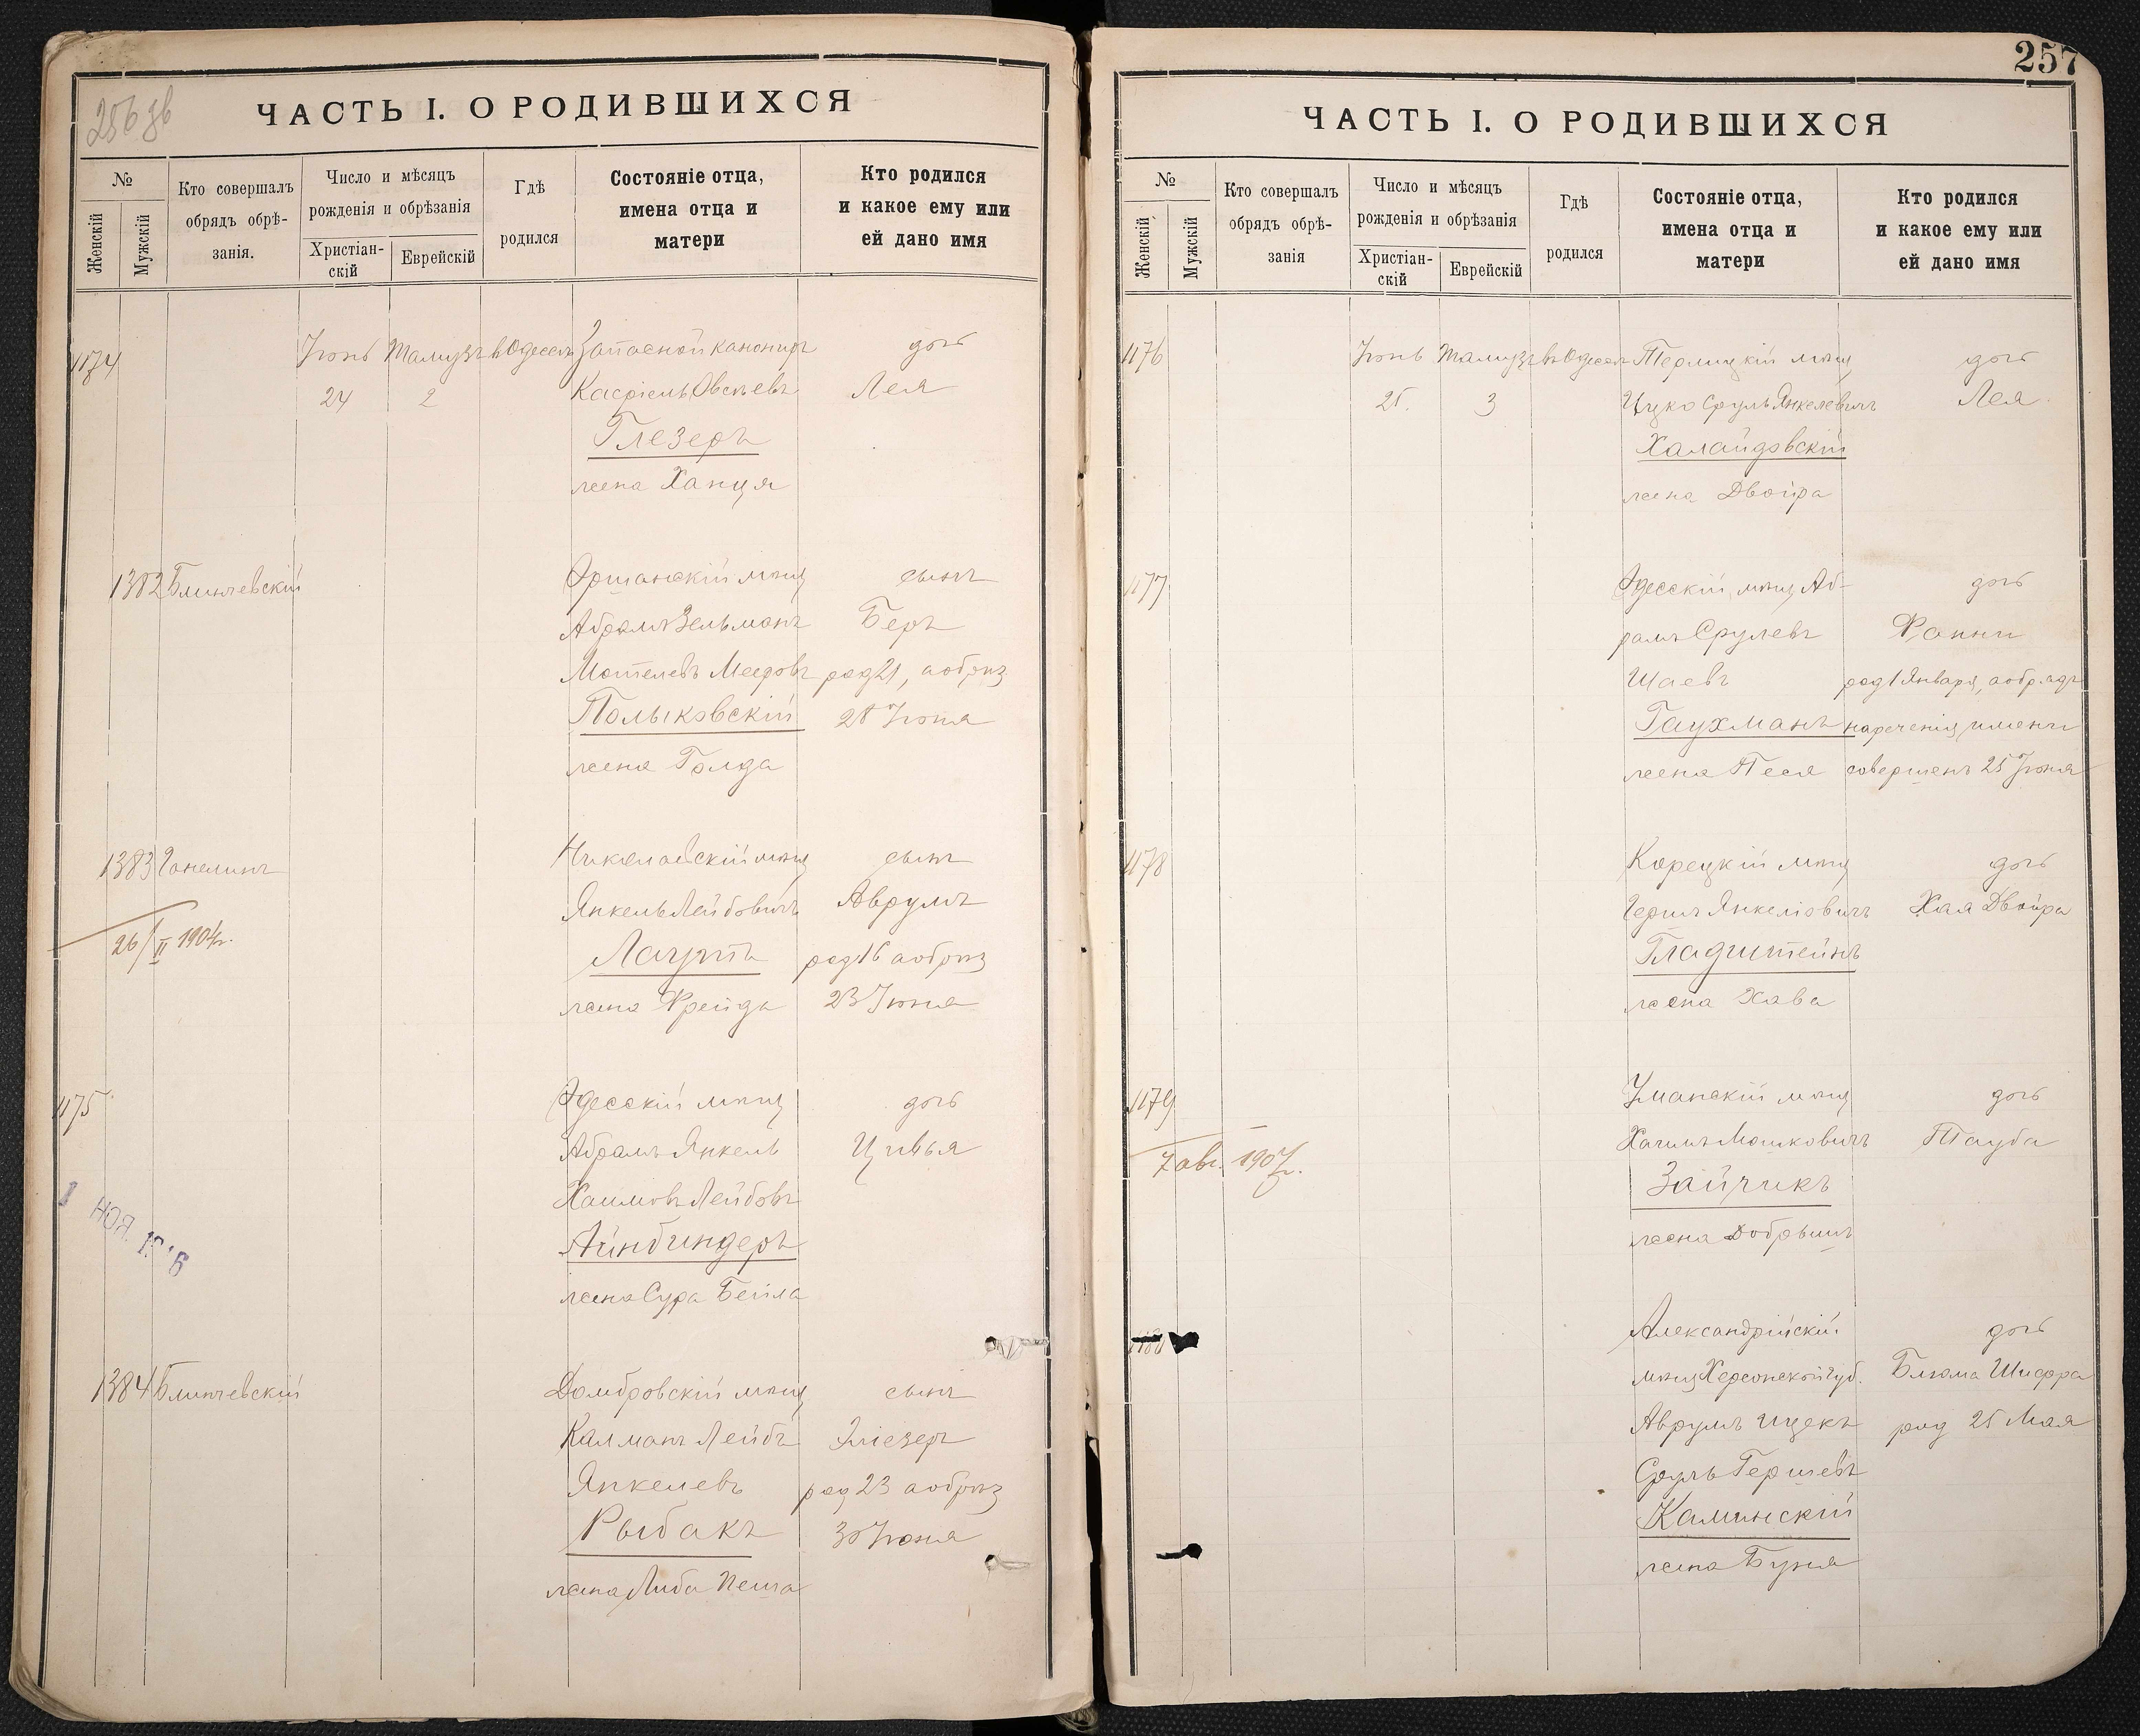 256 зв
ЧАСТЬ I. О РОДИВШИХСЯ
№
Женскій
Мужскій
Кто совершалъ
обрядъ обрѣ-
занія.
Число и мѣсяцъ
рожденія и обрѣзанія
Христіан-
скій
Еврейскій
Гдѣ
родился
Состояніе отца,
имена отца и
матери
Кто родился
и какое ему или
ей дано имя
1174 Іюнь Тамузъ въ Одессѣ Запасной канониръ дочь
24 2 Касріель Овсѣевъ Лея
Глезеръ
жена Ханця
1382 Блинчевскій Оршанскій мѣщ сынъ
Абрамъ Зельманъ Беръ
Мотелевъ Мееровъ род 21, а обрѣз
Полыковскій 28 Іюня
жена Голда
1383 Ганелинъ Николаевскій мѣщ сынъ
Янкель Лейбовичъ Аврумъ
26/II 1904 г. Лаузтъ род 16 а обрѣз
жена Фрейда 23 Іюня
1175 Одесскій мѣщ дочь
Абрамъ Янкель Цивья
Хаимовъ Лейбовъ
НОЯ
Айнбиндеръ
жена Сура Бейла
1384 Блинчевскій Домбровскій мѣщ сынъ
Калманъ Лейбъ Эліезеръ
Янкелевъ род 23 а обрѣз
Рыбакъ 30 Іюня
жена Либа Песя
257
ЧАСТЬ I. О РОДИВШИХСЯ
№
Женскій
Мужскій
Кто совершалъ
обрядъ обрѣ-
занія
Число и мѣсяцъ
рожденія и обрѣзанія
Христіан-
скій
Еврейскій
Гдѣ
родился
Состояніе отца,
имена отца и
матери
Кто родился
и какое ему или
ей дано имя
1176 Іюнь Тамузъ въ Одессѣ мѣщ дочь
25. 3 Ицко Сруль Янкелевичъ Лея
Халайдовскій
жена Двойра
1177 Одесскій мѣщ Аб- дочь
рамъ Срулевъ Фанни
Шаевъ род 1 Января, а обрядъ
Гаухманъ нареченія имени
жена Песя совершенъ 25 Іюня
1178 Корецкій мѣщ дочь
Гершъ Янкеліовичъ Хая Двойра
Гладштейнъ
жена Хава
1179 Уманскій мѣщ дочь
7 авг. 1907 г. Хаимъ Мошковичъ Тауба
Зайчикъ
жена Добрышъ
1180 Александрійскій дочь
мѣщ Херсонской губ. Блюма Шифра
Аврумъ Ицекъ род 25 Мая
Сруль Гершевъ
Каминскій
жена Буня